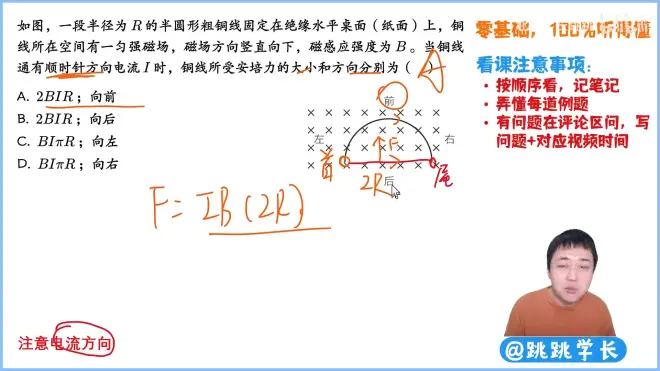 如图，一段半径为 R 的半圆形粗铜线固定在绝缘水平桌面（纸面）上，铜
线所在空间有一匀强磁场，磁场方向竖直向下，磁感应强度为 B。当铜线
通有顺时针方向电流 I 时，铜线所受安培力的大小和方向分别为（ ）
A
A. 2BIR；向前
B. 2BIR；向后
C. BIπR；向左
D. BIπR；向右
前
左
右
后
首
尾
2R
F = IB(2R)
注意电流方向
零基础，100%听得懂
看课注意事项：
• 按顺序看，记笔记
• 弄懂每道例题
• 有问题在评论区问，写
问题+对应视频时间
@跳跳学长